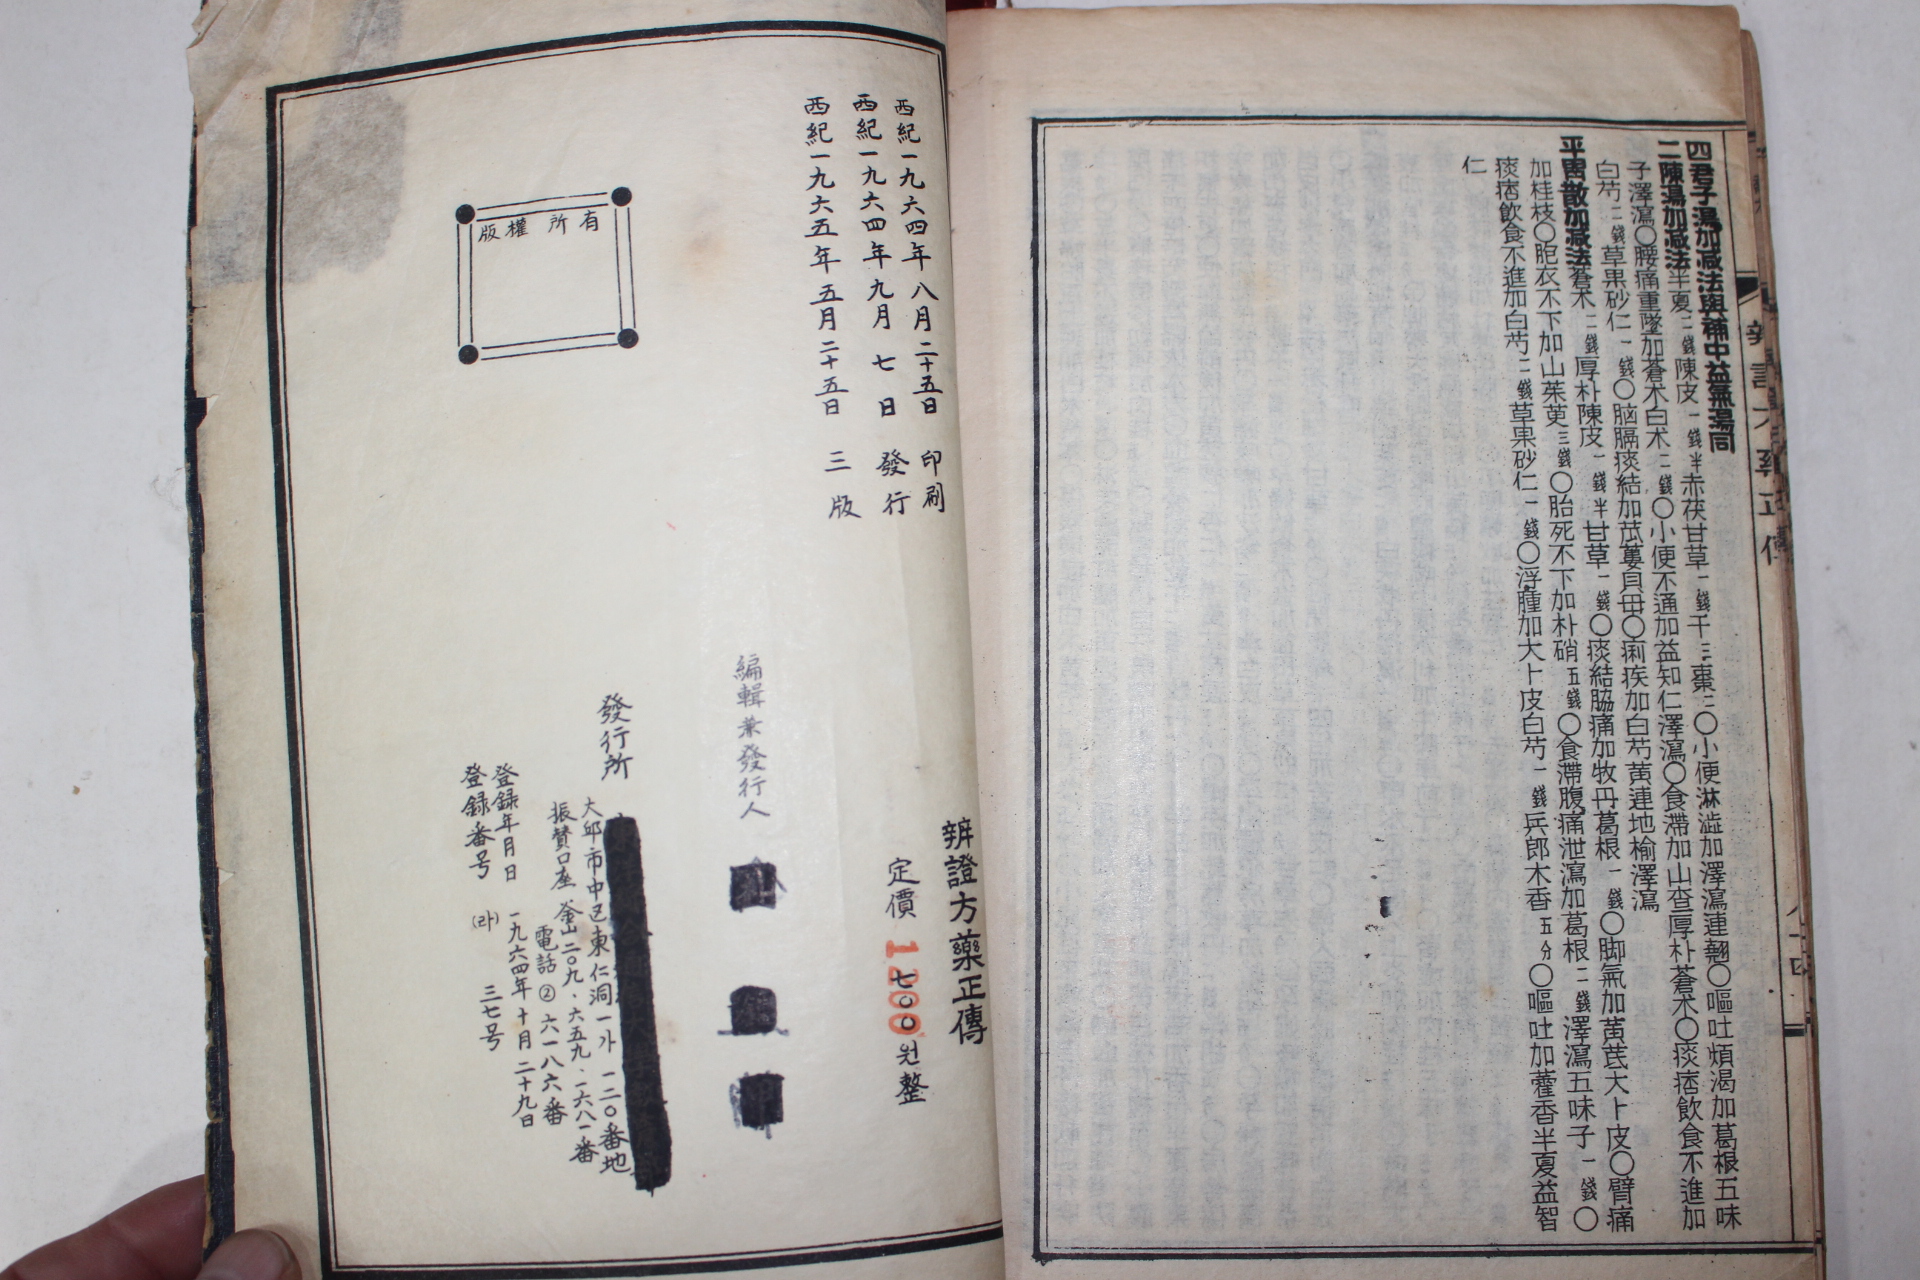 四君子湯加减法與補中益氣湯同
二陳湯加减法半夏二錢陳皮一錢半赤茯甘草一錢干三棗二〇小便淋澁加澤瀉連翹〇嘔吐煩渴加葛根五味
子澤瀉〇腰痛重墜加蒼朮白朮二錢〇小便不通加益知仁澤瀉〇食滯加山査厚朴蒼朮〇痰痞飮食不進加
白芍二錢草果砂仁一錢〇脑膈痰結加苽蔞貝母〇痢疾加白芍黃連地榆澤瀉
平胃散加减法蒼朮二錢厚朴陳皮一錢半甘草一錢〇痰結脇痛加牧丹葛根一錢〇脚氣加黃芪大卜皮〇臂痛
加桂枝〇胞衣不下加山茱萸三錢〇胎死不下加朴硝五錢〇食滯腹痛泄瀉加葛根二錢澤瀉五味子一錢〇
痰痞飮食不進加白芍二錢草果砂仁一錢〇浮腫加大卜皮白芍一錢兵郎木香五分〇嘔吐加藿香半夏益智
仁
西紀一九六四年八月二十五日 印刷
西紀一九六四年九月七日 發行
西紀一九六五年五月二十五日 三版
版權所有
辨證方藥正傳
定價 七〇〇원整
1200
編輯兼發行人
發行所
大邱市中区東仁洞一가一二〇番地
振賛口座釜山二〇九、六五九、一六八一番
電話②六一八六番
登録年月日 一九六四年十月二十九日
登録番号 (라) 三七号